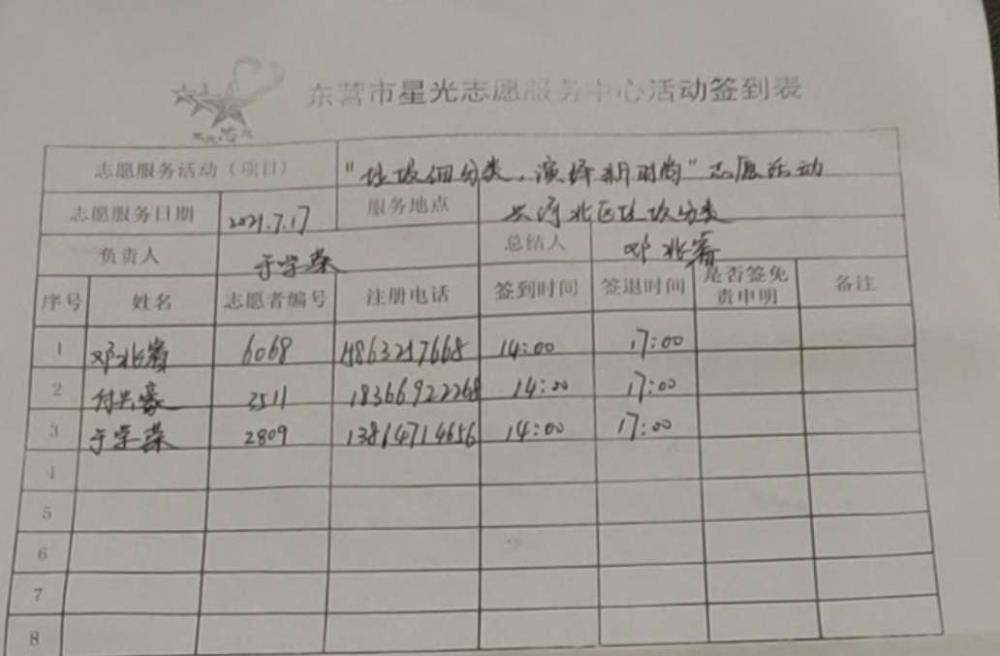 东营市星光志愿服务中心活动签到表
志愿服务活动（项目） "垃圾细分类，演绎新时尚"志愿活动
志愿服务日期 2021.7.17 服务地点 河北区垃圾分类
负责人 于学荣 总结人 邓兆
序号 姓名 志愿者编号 注册电话 签到时间 签退时间 是否签免责申明 备注
1 邓兆 6068 1863217668 14:00 17:00
2 付兴豪 3511 18366922268 14:00 17:00
3 于学荣 2809 13864714656 14:00 17:00
4
5
6
7
8